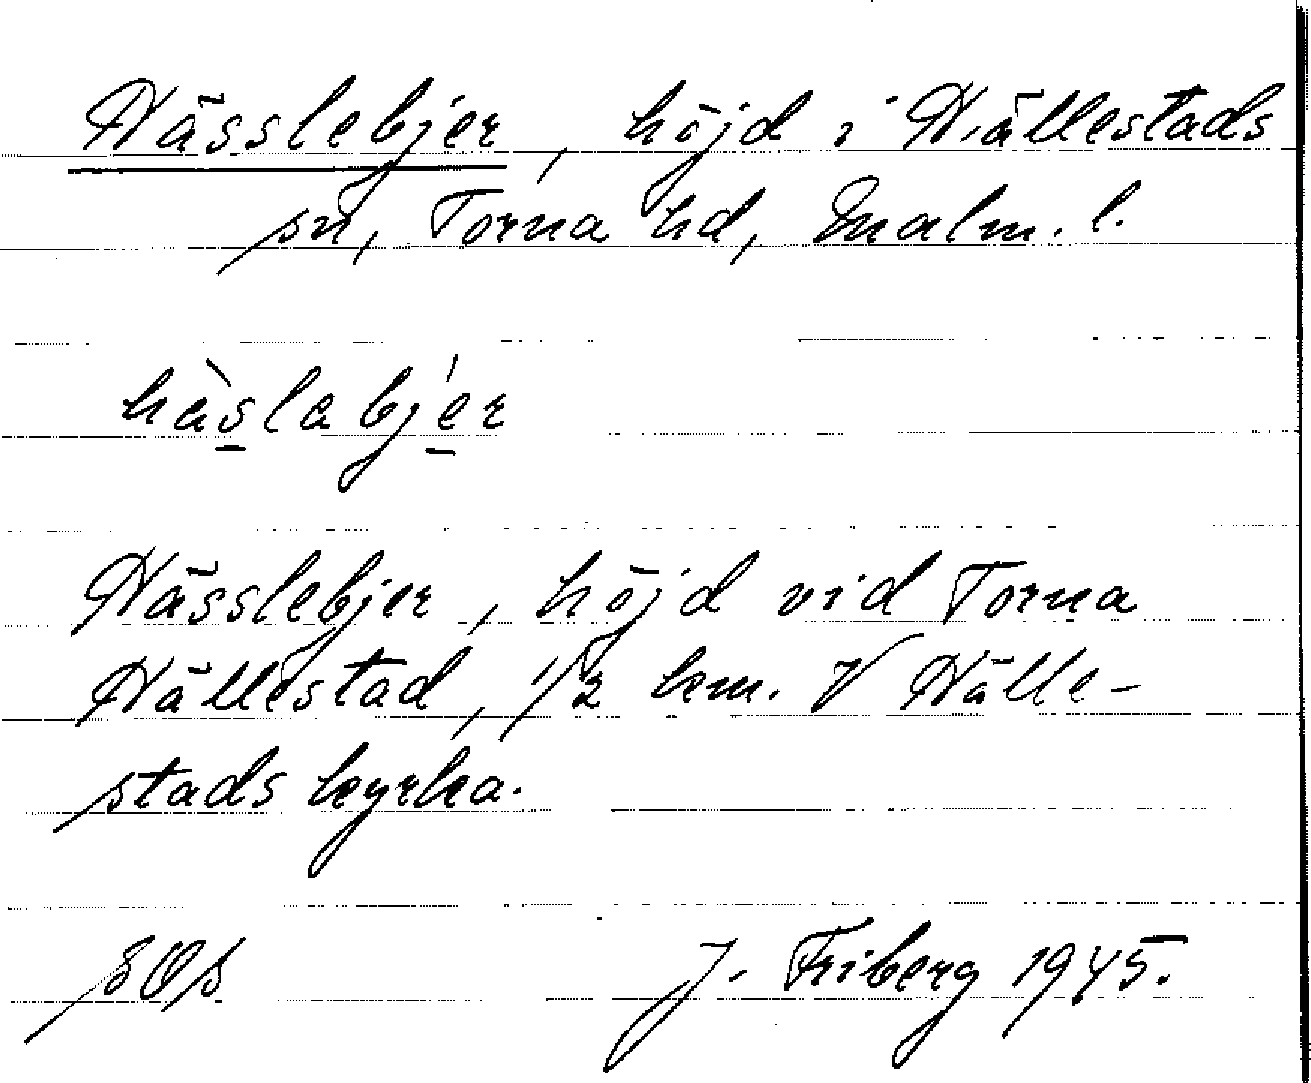 Hässlebjer, höjd i Hällestads
sn, Torna hd, Malm. l.
hàslabjér
Hässlebjer, höjd vid Torna
Hällestad, 1/2 km. V Hälle-
stads kyrka.
J. Friberg 1945.